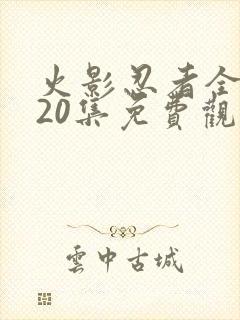 火影忍者全
20集免費觀
雲中古城